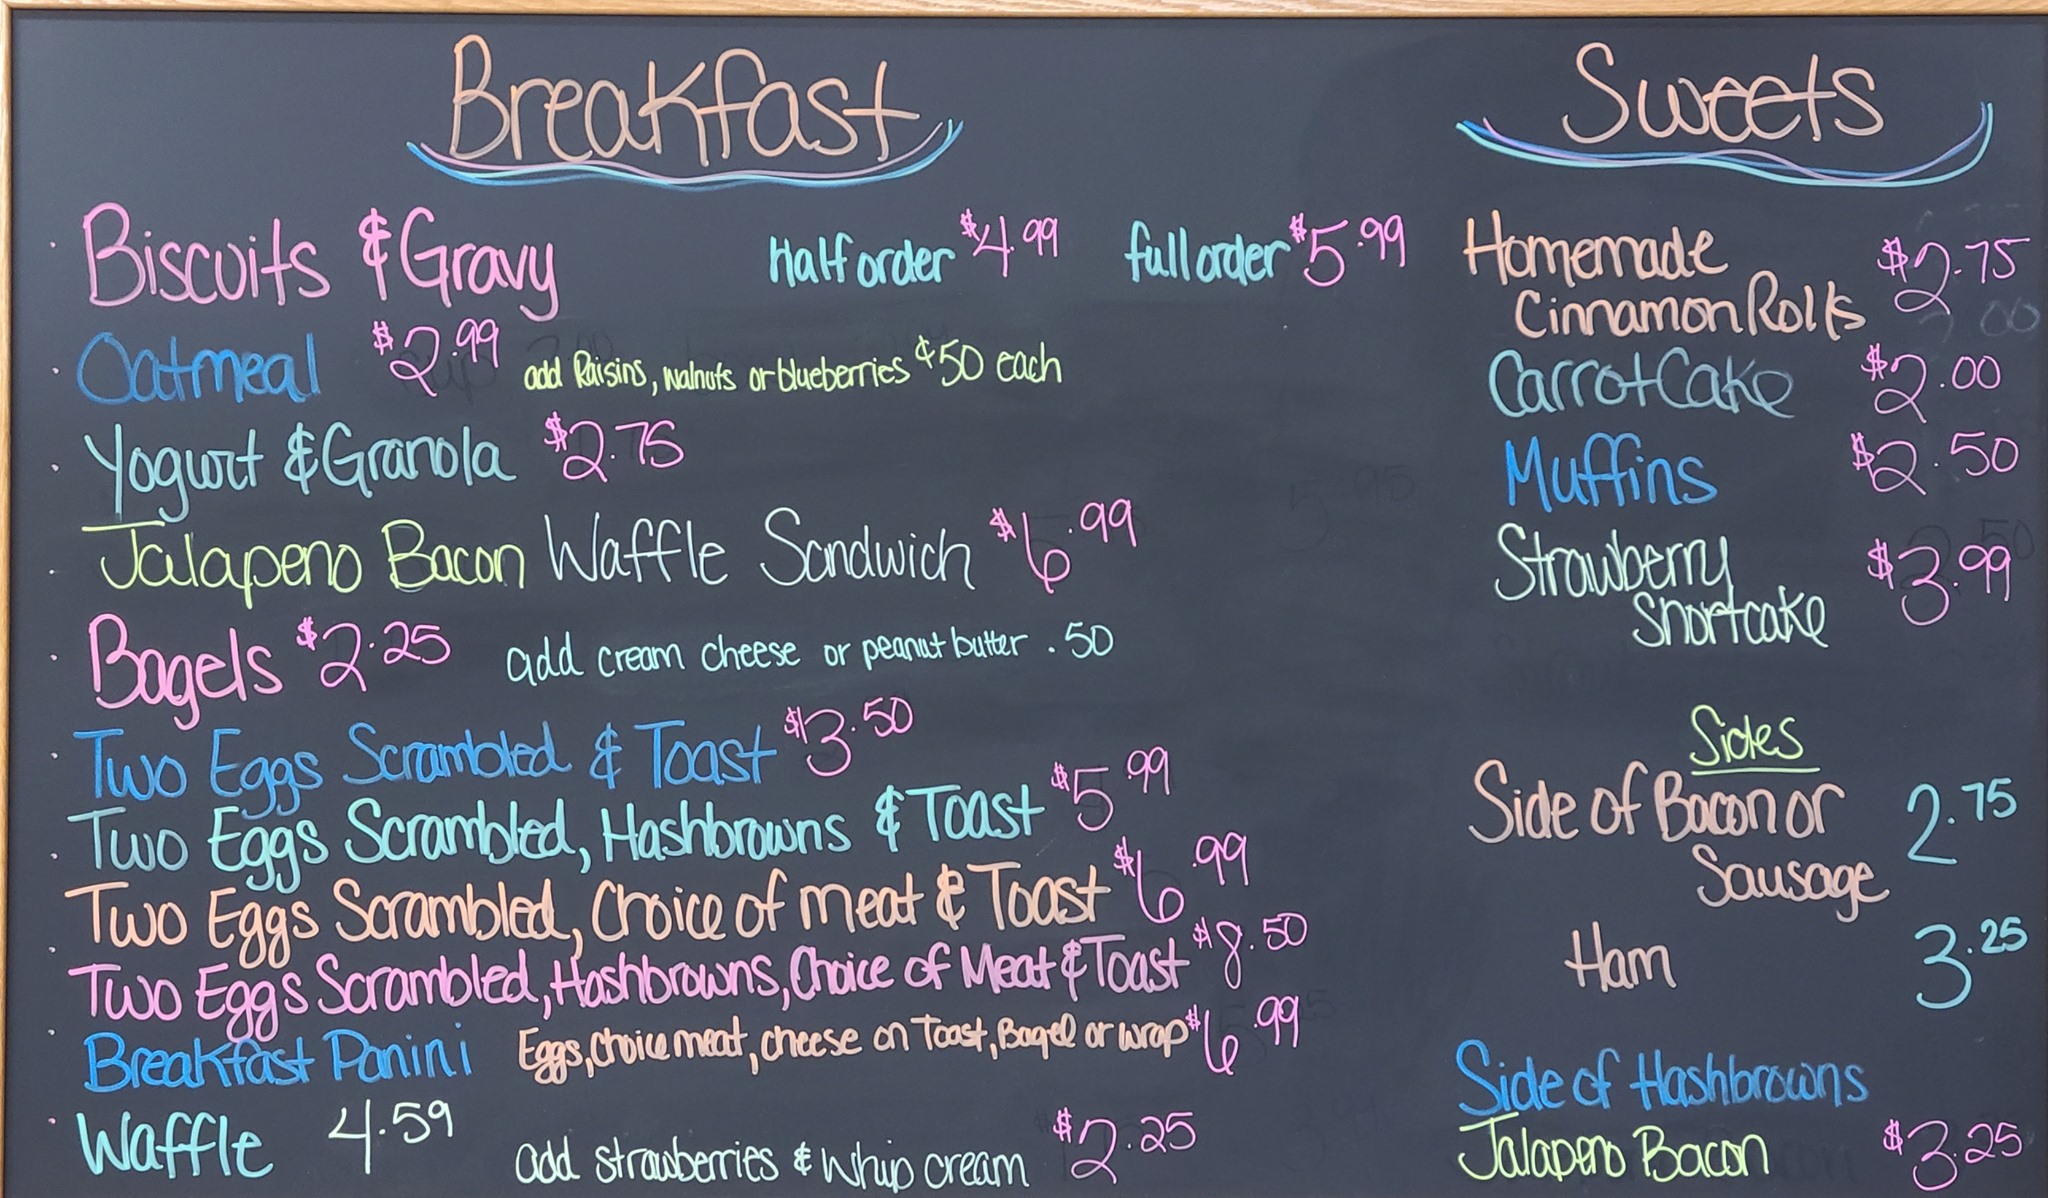 Breakfast
Biscuits & Gravy Half order $4.99 full order $5.99
Oatmeal $2.99 add Raisins, walnuts or blueberries ¢50 each
Yogurt & Granola $2.75
Jalapeno Bacon Waffle Sandwich $6.99
Bagels $2.25 add cream cheese or peanut butter .50
Two Eggs Scrambled & Toast $3.50
Two Eggs Scrambled, Hashbrowns & Toast $5.99
Two Eggs Scrambled, Choice of meat & Toast $6.99
Two Eggs Scrambled, Hashbrowns, Choice of Meat & Toast $8.50
Breakfast Panini Eggs, Choice meat, cheese on Toast, Bagel or wrap $6.99
Waffle 4.59 add strawberries & whip cream $2.25
Sweets
Homemade
Cinnamon Rolls $2.75
Carrot Cake $2.00
Muffins $2.50
Strawberry
Shortcake $3.99
Sides
Side of Bacon or
Sausage 2.75
Ham 3.25
Side of Hashbrowns
Jalapeno Bacon $3.25